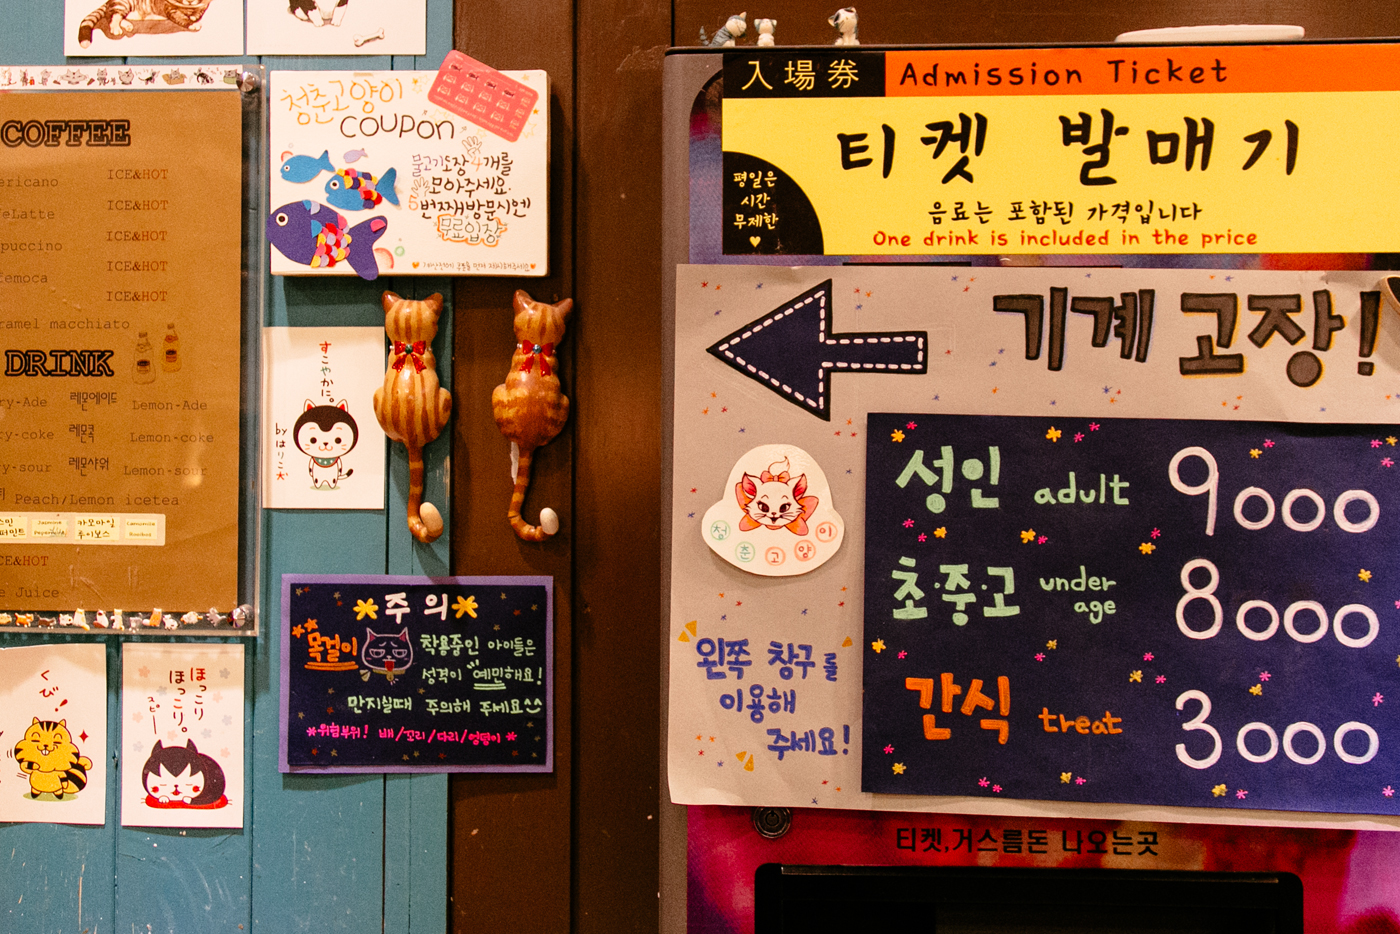 COFFEE
ericano ICE&HOT
feLatte ICE&HOT
puccino ICE&HOT
femoca ICE&HOT
ICE&HOT
ramel macchiato
DRINK
ry-Ade 레몬에이드 Lemon-Ade
ry-coke 레몬콕 Lemon-coke
ry-sour 레몬사워 Lemon-sour
Peach/Lemon icetea
카모마일
루이보스
CE&HOT
e Juice
청춘고양이
coupon
물고기도장 4개를
모아주세요.
5번째방문시엔
무료입장
すこやかに。
by はりこ犬
くび!
ほっこり
ほっこり。
スピー
주의
목걸이 착용중인 아이들은
성격이 "예민해요!
만지실때 주의해 주세요^^
*위험부위! 배/꼬리/다리/엉덩이*
入場券 Admission Ticket
티켓 발매기
평일은
시간
무제한
음료는 포함된 가격입니다
One drink is included in the price
기계 고장!
청춘고양이
왼쪽 창구를
이용해
주세요!
성인 adult 9000
초·중·고 under age 8000
간식 treat 3000
티켓,거스름돈 나오는곳